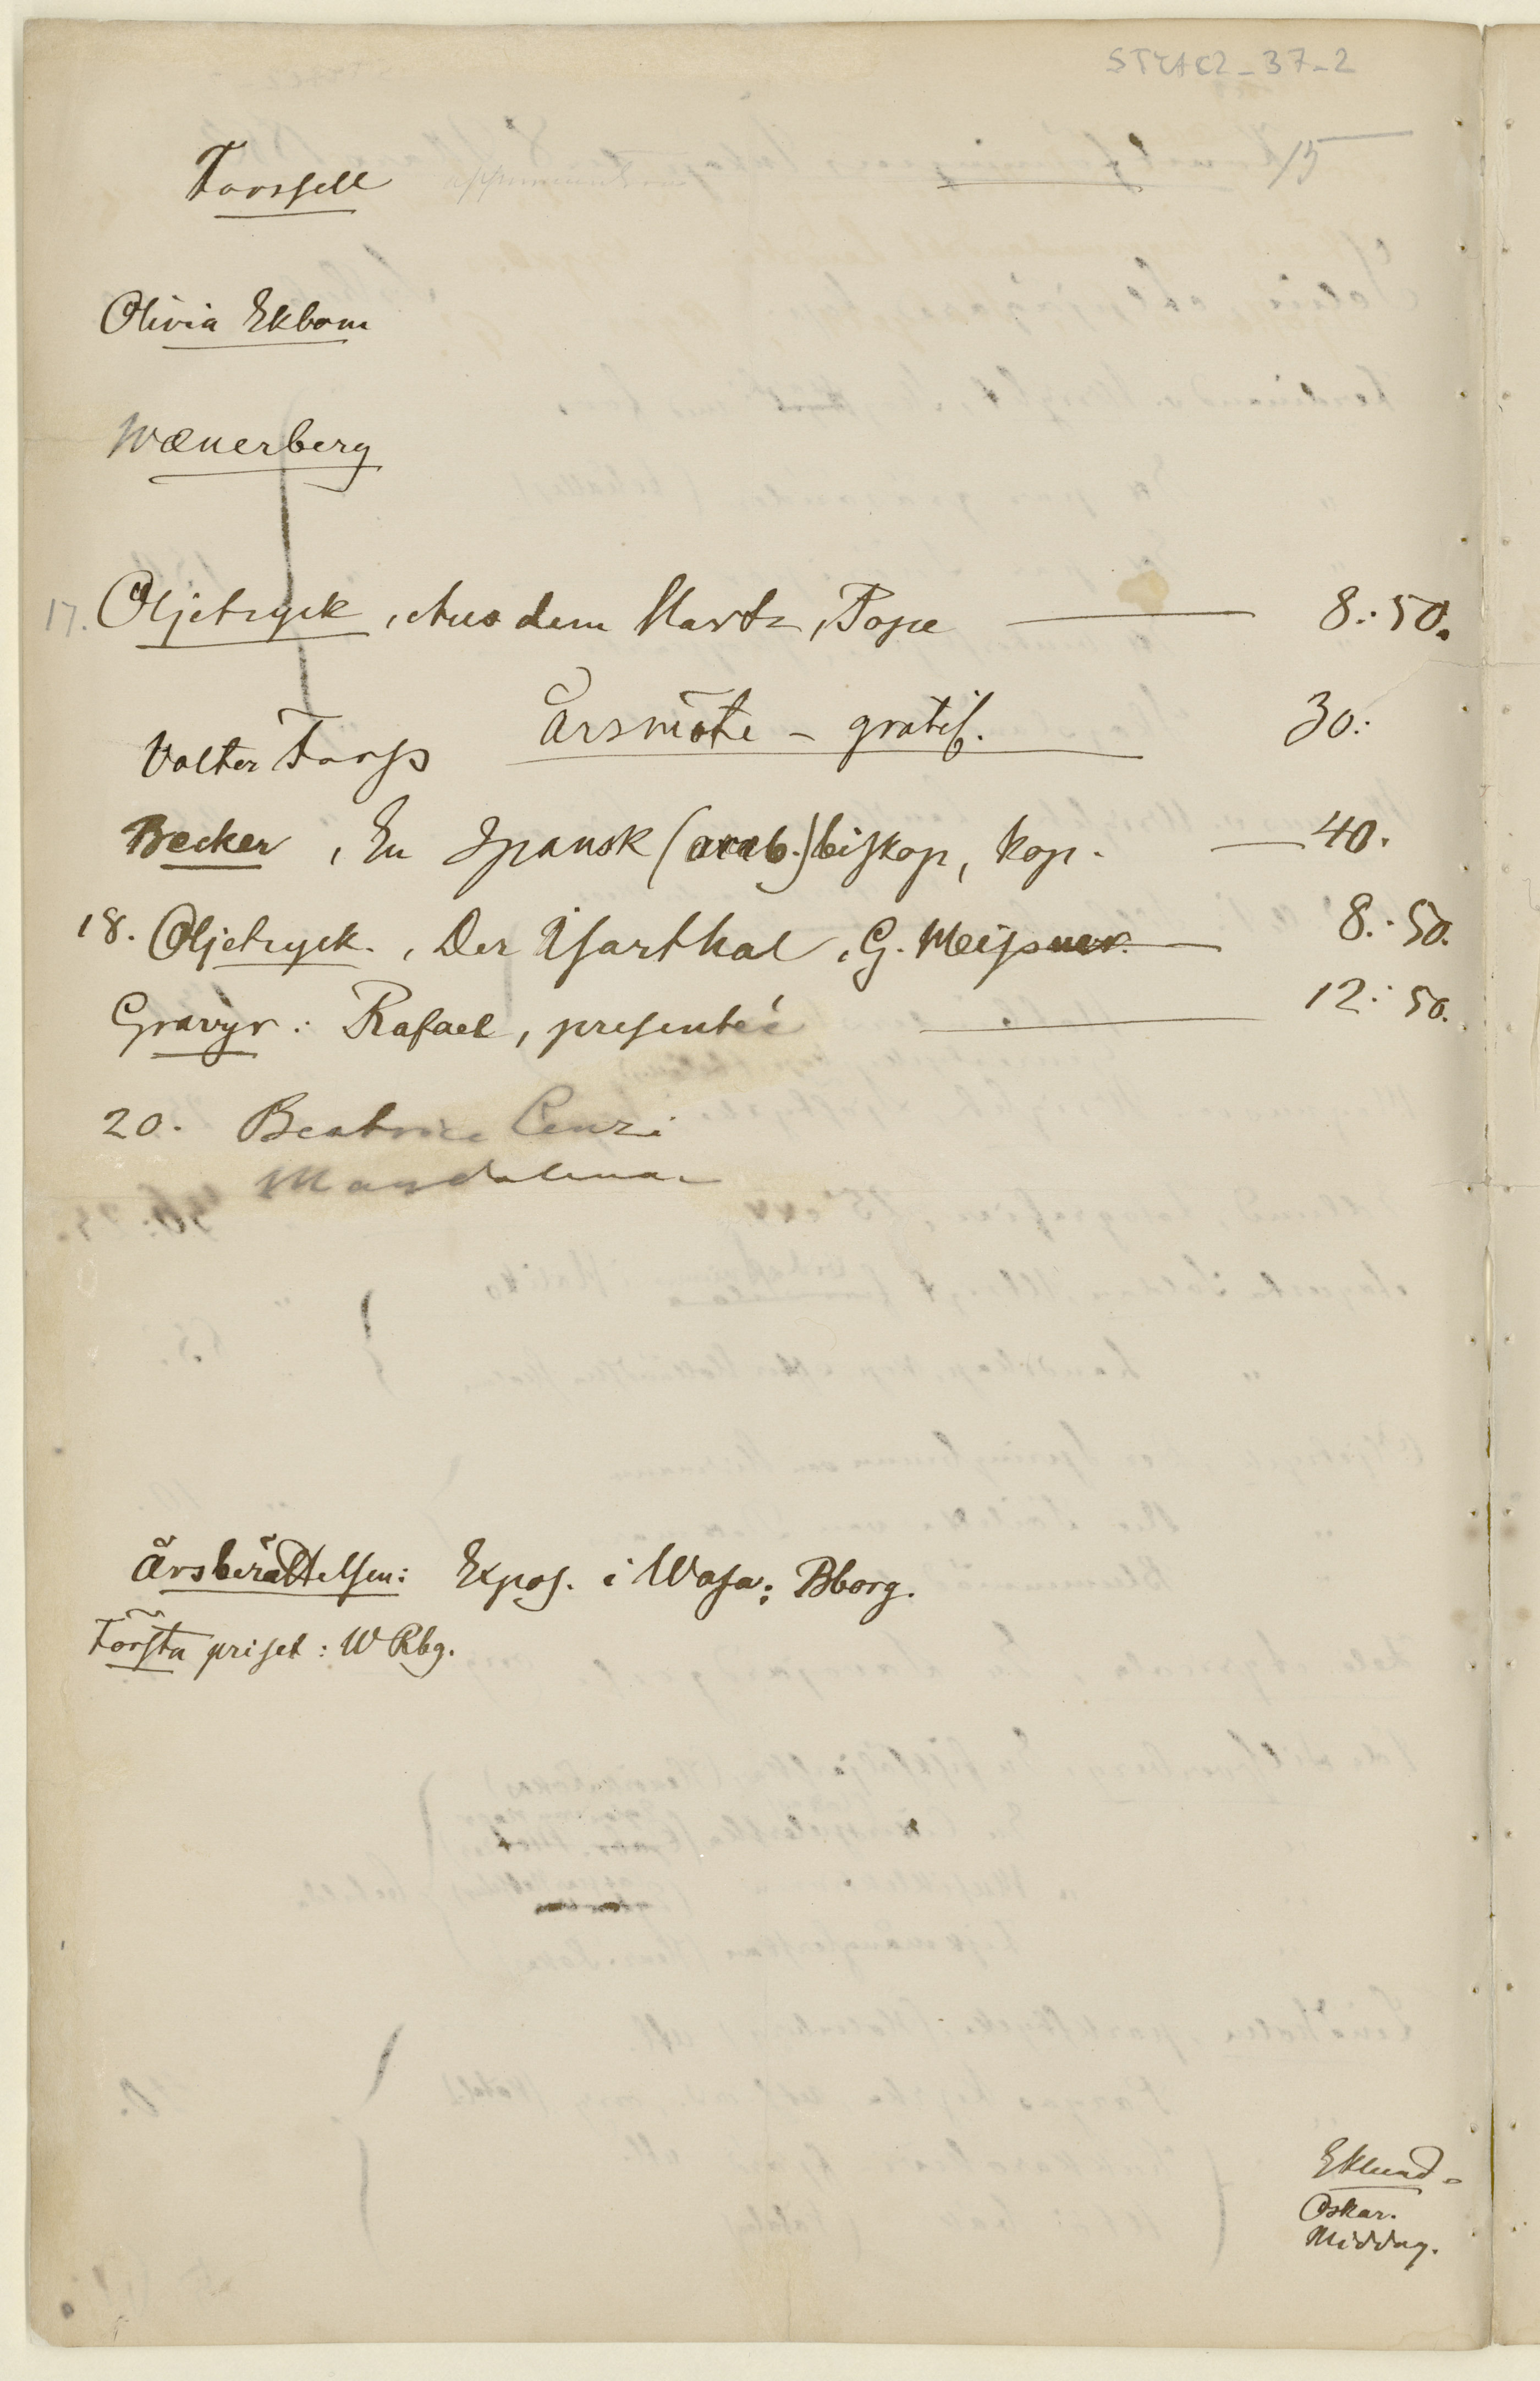 STYAK2_37_2
15
Forssell
Olivia Ekbom
Wænerberg
17. Oljetryck, Aus dem Hartz, Pope 8:50.
Årsmöte - gratif. 30:
Valter Forss
Becker, En Spansk (arab.) biskop, kop. 40.
18. Oljetryck., Der Isarthal, G. Meissner. 8:50.
Gravyr: Rafael, presenteé 12:50.
20. Beatrice Cenzi
Magdalena
Årsberättelsen: Expos. i Wasa; Bborg.
Första priset: W Rbg.
Eklund
Oskar.
Middag.